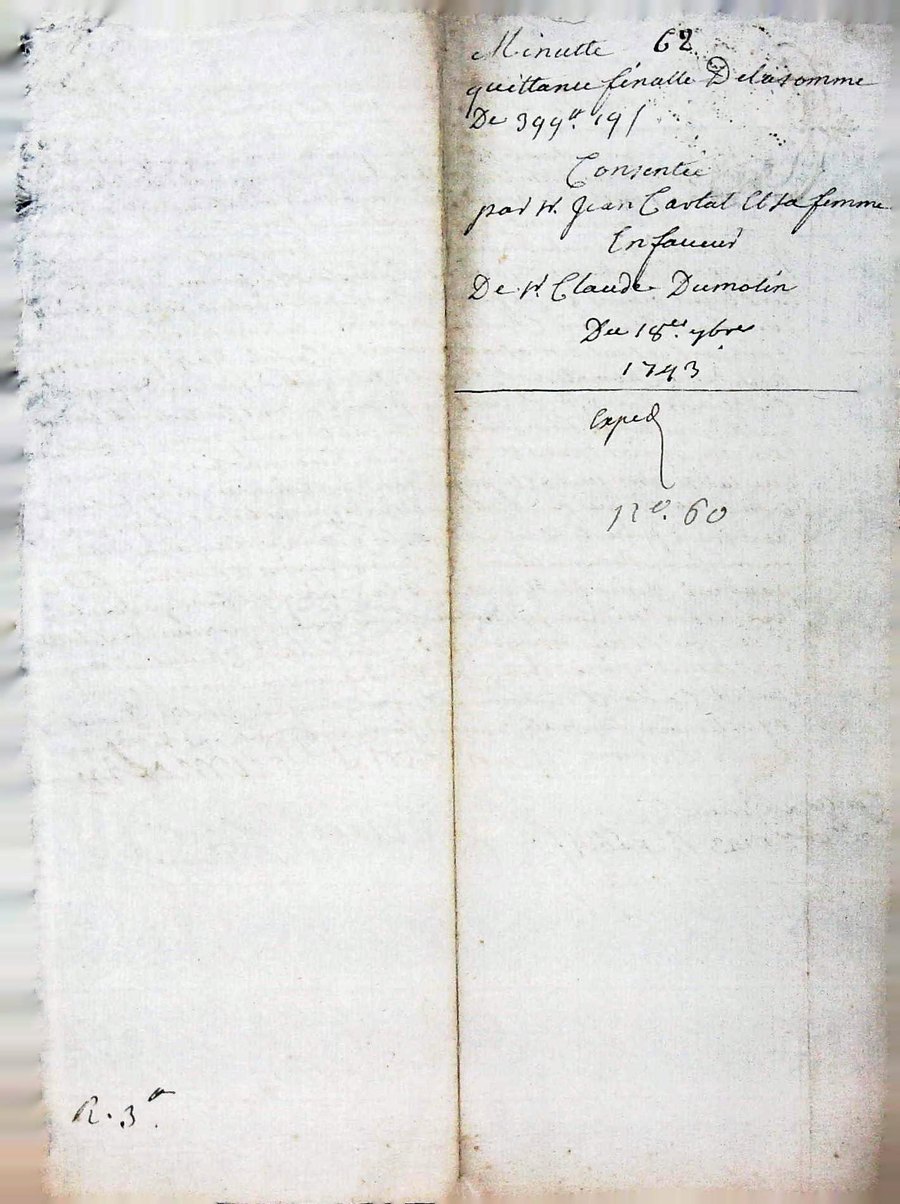 Minutte 62
quittance finalle Delasomme
De 399ᵗᵗ. 19ſ
Consentie
par sr. Jean Cartal Et sa femme
En faveur
De sr. Claude Dumolin
Du 18es. 7bre
1743
Exped
No. 60
R. 3ᵗᵗ